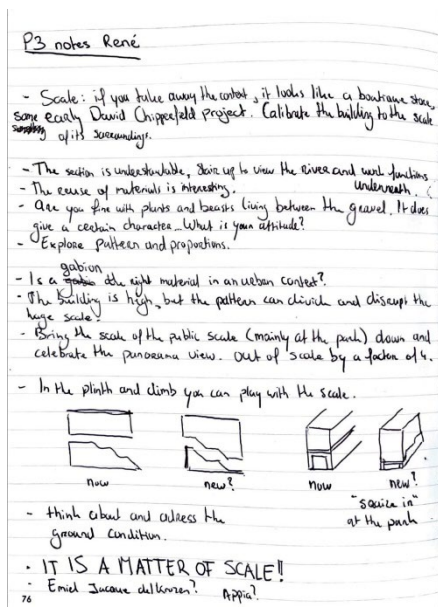 P3 notes René
- Scale: if you take away the context, it looks like a boutique store,
some early David Chipperfield project. Calibrate the building to the scale
of its surroundings.
- The section is understandable, stair up to view the river and work functions
underneath.
- The reuse of materials is interesting.
- are you fine with plants and beasts living between the gravel. It does
give a certain character... What is your attitude?
- Explore pattern and proportions.
gabion
- Is a the right material in an urban context?
- The building is high, but the pattern can divide and disrupt the
huge scale.
- Bring the scale of the public scale (mainly at the park) down and
celebrate the panorama view. out of scale by a factor of 4.
- In the plinth and climb you can play with the scale.
now
new?
now
new?
"squize in"
at the park
- think about and adress the
ground condition.
- IT IS A MATTER OF SCALE!!
- Emiel Jacque dalkrozen? Appia?
76